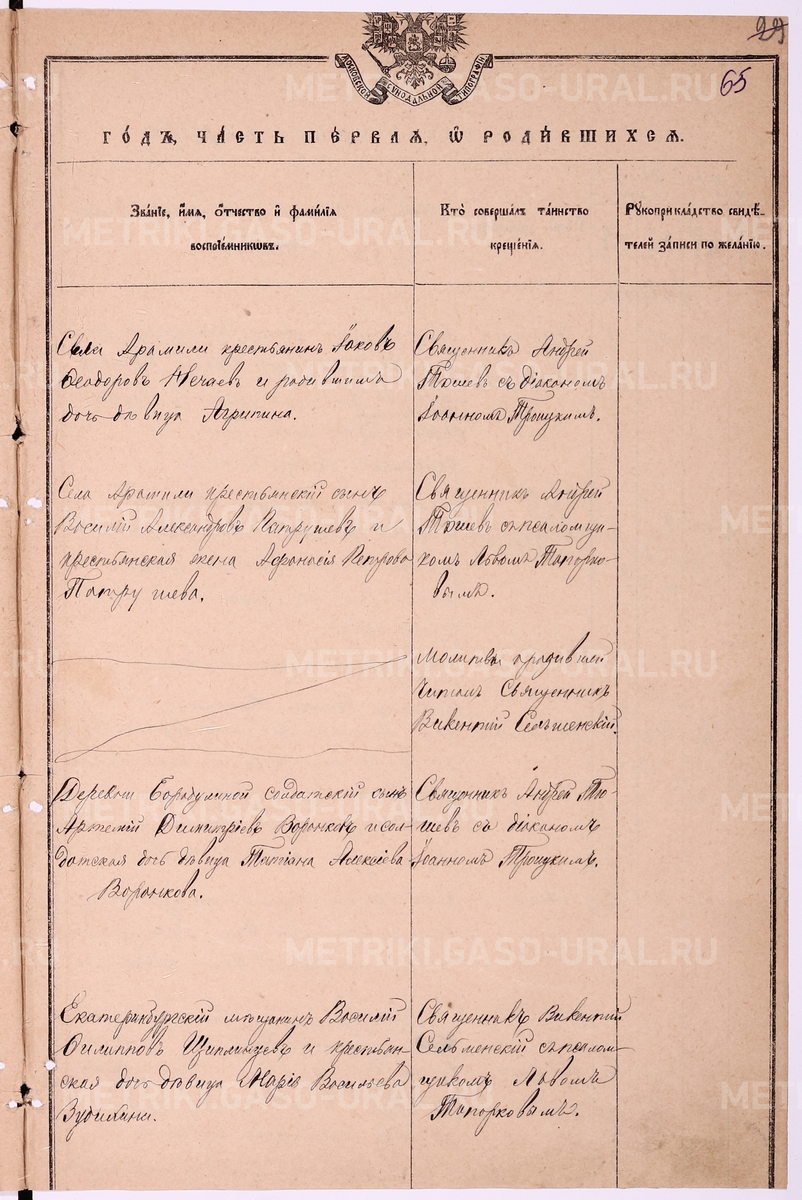 29
65
МОСКОВСКОЙ СѴНОДАЛЬНОЙ ТИПОГРАФІИ
ГОДЪ, ЧАСТЬ ПЕРВАЯ, Ѿ РОДИВШИХСЯ.
Званіе, имя, отчество и фамилія
воспріемниковъ.
Кто совершалъ таинство
крещенія.
Рукоприкладство свидѣ-
телей записи по желанію.
Села Арамили крестьянинъ Іаковъ
Ѳеодоровъ Нечаевъ и родившимъ
дочь дѣвица Агрипина.
Священникъ Андрей
Тошевъ съ діакономъ
Іоанномъ Троицкимъ.
Села Арамили крестьянскій сынъ
Василій Александровъ Патрушевъ и
крестьянская жена Афанасія Петрова
Патрушева.
Священникъ Андрей
Тошевъ съ псаломщи-
комъ Львомъ Топорко-
вымъ.
Молитвы родившей
читалъ Священникъ
Викентій Сельменскій.
Деревни Бородулиной солдатскій сынъ
Артемій Димитріевъ Воронковъ и сол-
датская дочь дѣвица Татіана Алексіева
Воронкова.
Священникъ Андрей То-
шевъ съ діакономъ
Іоанномъ Троицкимъ.
Екатеринбургскій мѣщанинъ Василій
Филипповъ Щиплинцевъ и крестьян-
ская дочь дѣвица Марія Васильева
Зубихина.
Священникъ Викентій
Сельменскій съ псалом-
щикомъ Львомъ
Топорковымъ.
METRIKI.GASO-URAL.RU